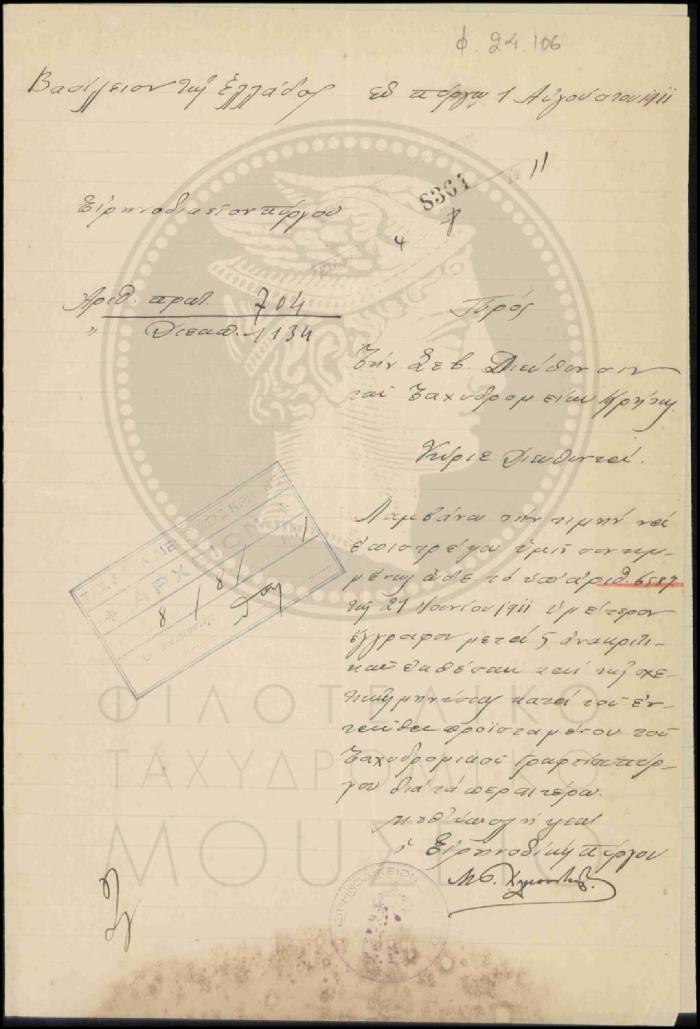 φ. 24.106
Βασίλειον της Ελλάδος
εν Πύργω 1 Αυγούστου 1911
8364
11
4
8
Ειρηνοδικείον Πύργου
Αριθ. πρωτ. 704
" Διεκπ. 1134
Προς
Την Σεβ. Διεύθυνσιν
των Ταχυδρομείων Κρήτης
Κύριε Διευθυντά.
Λαμβάνω την τιμήν να
επιστρέψω υμίν συνημ-
μένως ώδε το υπ' αριθ. 6587
της 21 Ιουνίου 1911 υμέτερον
έγγραφον μετά 5 ανακριτι-
κών εκθέσεων και της σχε-
τικής μηνύσεως κατά του εν-
ταύθα προϊσταμένου του
Ταχυδρομικού Γραφείου Πύρ-
γου δια τα περαιτέρω.
Μεθ' υπολήψεως
ο Ειρηνοδίκης Πύργου
ΑΡΧΕΙΟΝ
8/8/11
ΕΙΡΗΝΟΔΙΚΕΙΟΝ
ΦΙΛΟΤΕΛΙΚΟ
ΤΑΧΥΔΡΟΜΙΚΟ
ΜΟΥΣΕΙΟ